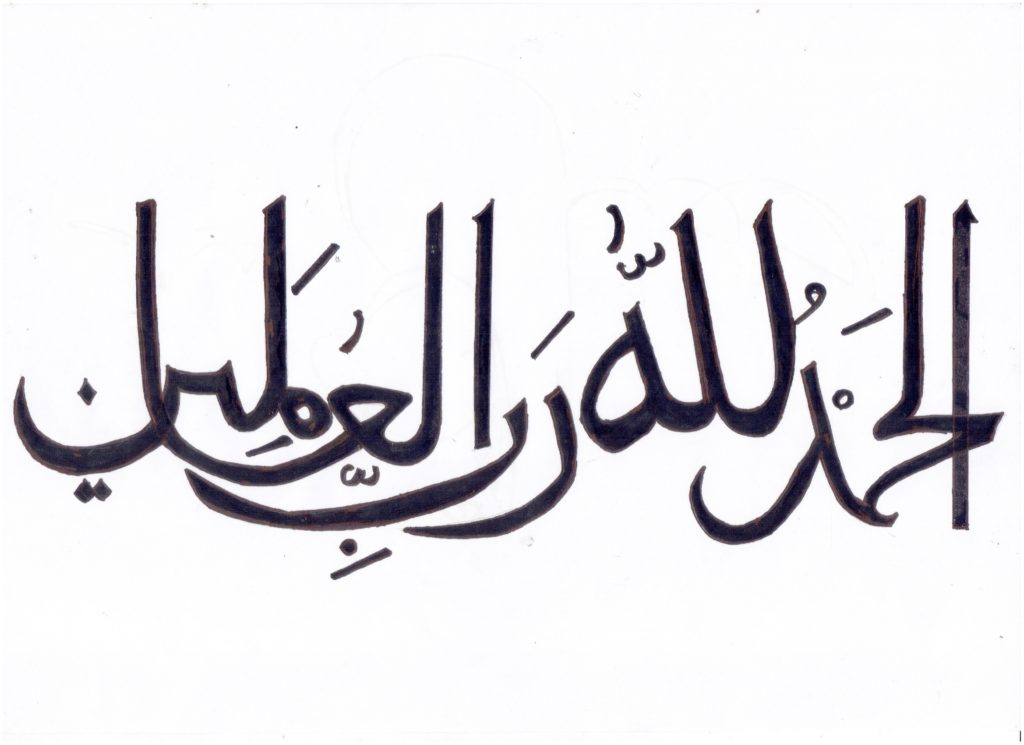 الحَمْدُ للّٰه رَبِّ العَالَمِين